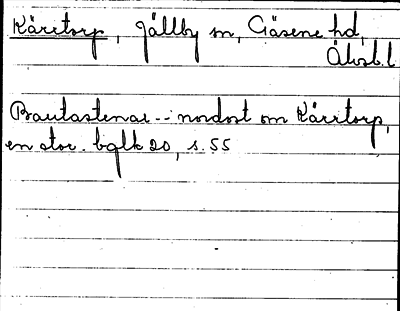 Kärrtorp, Jällby sn, Gäsene hd,
Älvsb.l
Bautastenar -- nordost om Kärrtorp,
en stor. bglk 20, s. 55